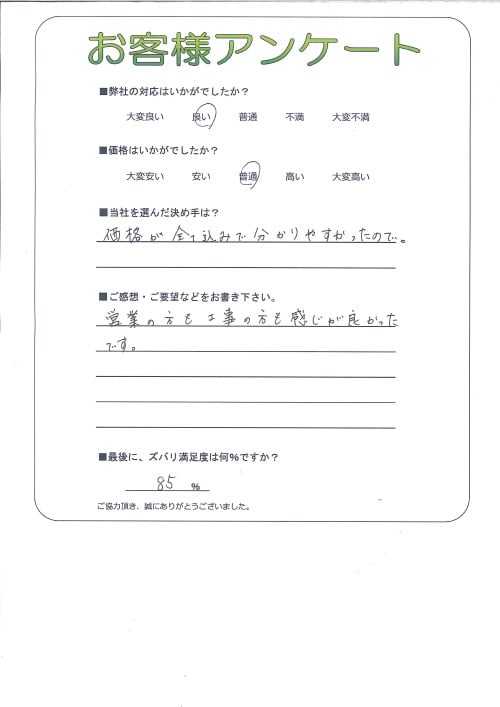 お客様アンケート
■弊社の対応はいかがでしたか？
大変良い 良い 普通 不満 大変不満
■価格はいかがでしたか？
大変安い 安い 普通 高い 大変高い
■当社を選んだ決め手は？
価格が全て込みで分かりやすかったので。
■ご感想・ご要望などをお書き下さい。
営業の方も工事の方も感じが良かった
です。
■最後に、ズバリ満足度は何％ですか？
85 ％
ご協力頂き、誠にありがとうございました。